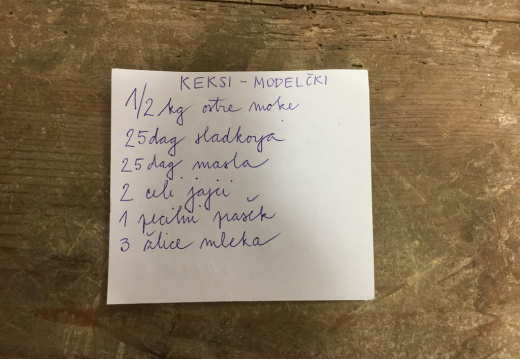 KEKSI - MODELČKI
1/2 kg ostre moke
25dag sladkorja
25dag masla
2 celi jajci
1 pecilni prašek
3 žlice mleka